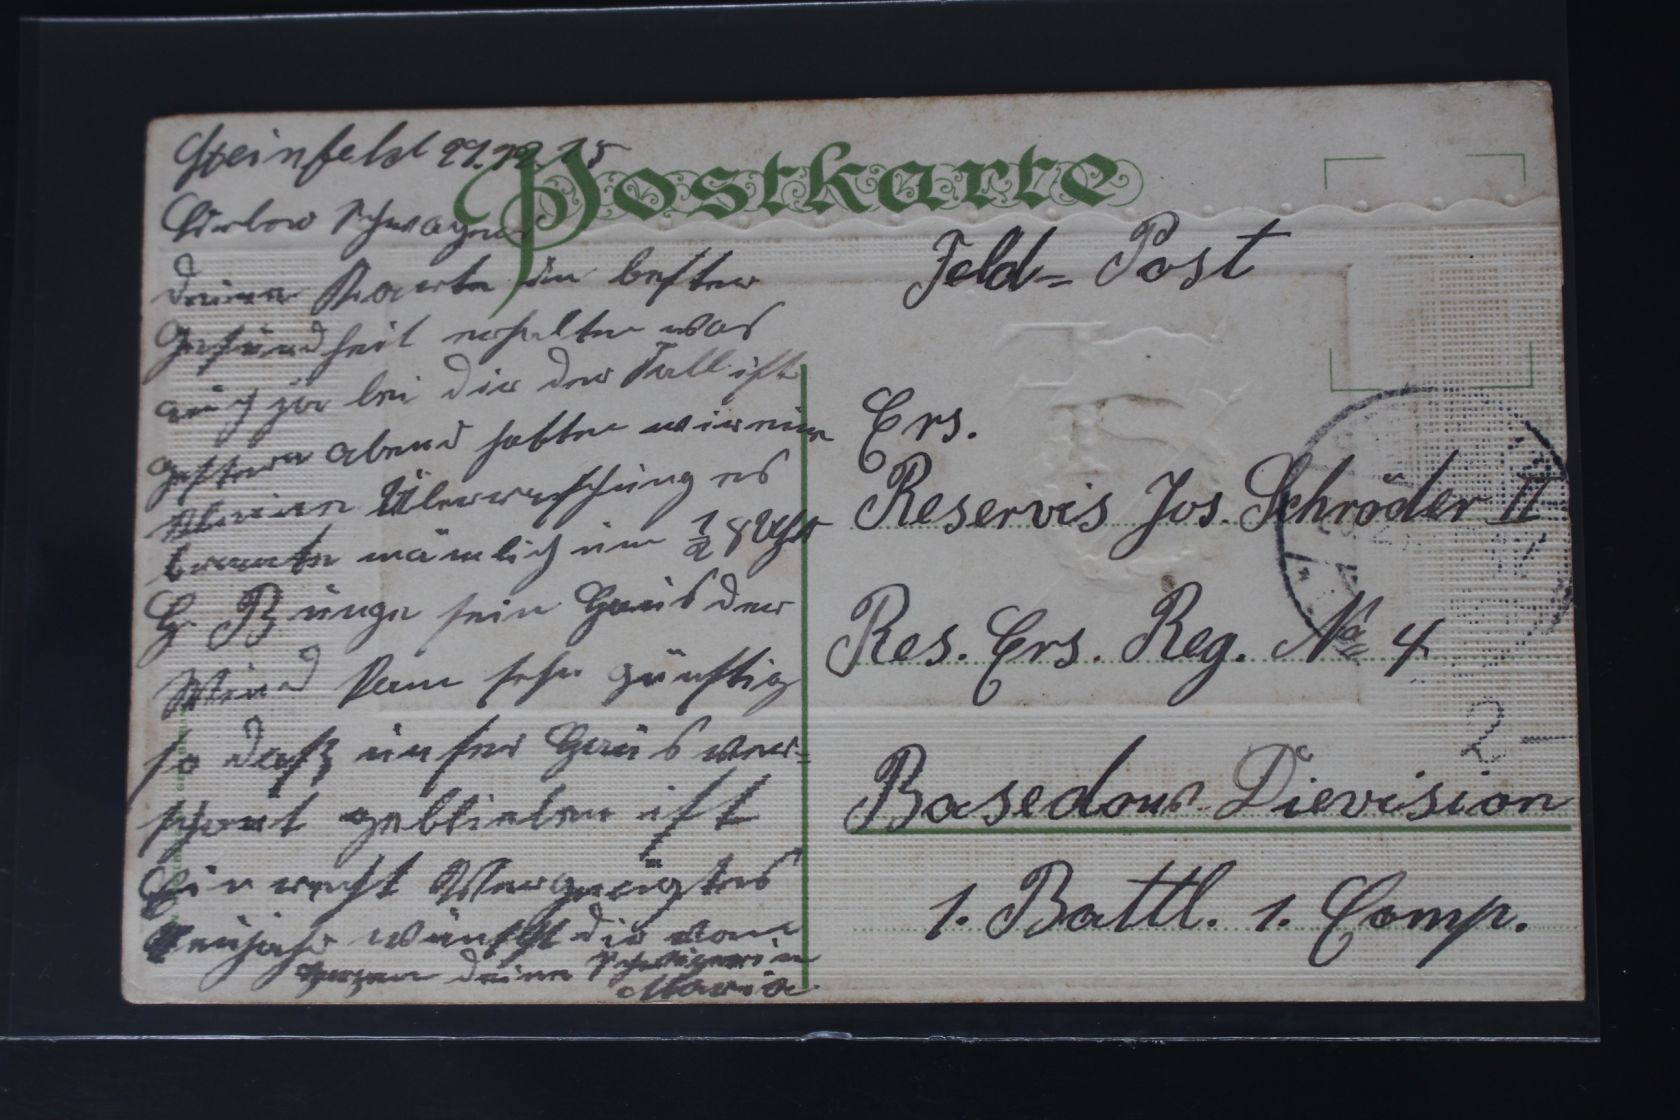 Steinfeld 29.12.15
Postkarte
Lieber Schwager
Deine Karte in bester
Gesundheit erhalten was
auch ja bei dir der Fall ist
gestern abend hatten wir eine
kleine Überraschung es
brante nämlich um ½ 8 Uhr
G. Bünge sein Haus der
Wind kam sehr günstig
so daß unser Haus ver-
schont geblieben ist
Ein recht Vergnügtes
Neujahr wünscht dir von
Herzen deine Schwägerin
Maria
Feld- Post
Ers.
Reservis Jos. Schröder II
Res. Ers. Reg. No 4
Basedow Dievision
1. Battl. 1. Comp.
2-